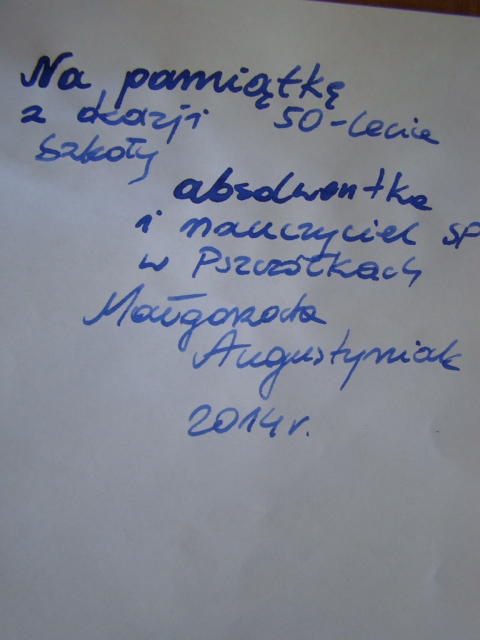 Na pamiątkę
z okazji 50-lecia
Szkoły
absolwentka
i nauczyciel SP
w Pszczółkach
Małgorzata
Augustyniak
2014r.